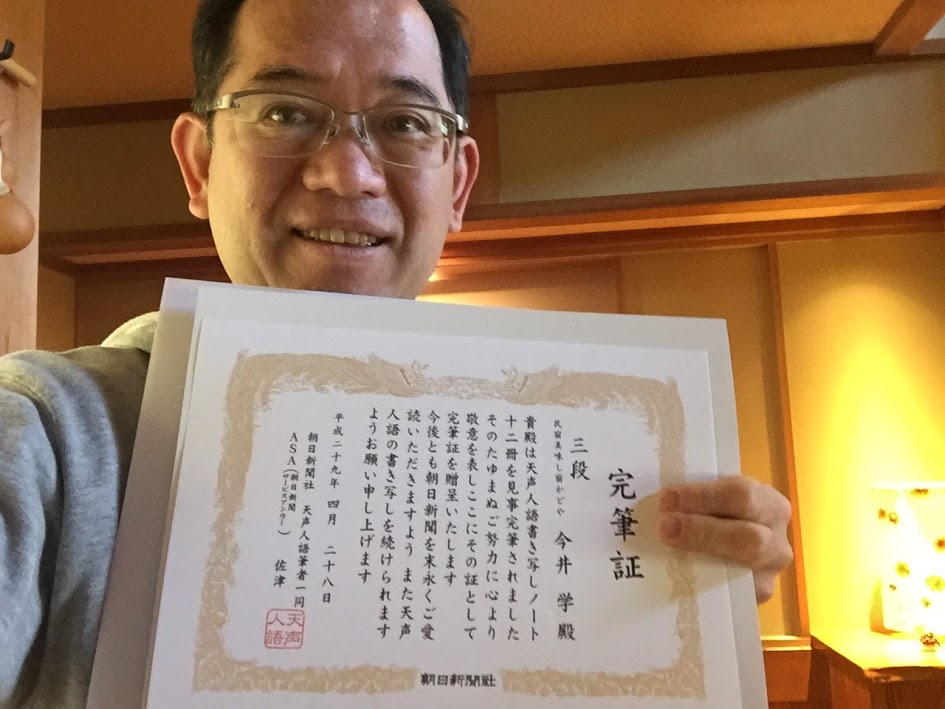 完筆証
三段
民宿美味し宿かどや 今井 学 殿
貴殿は天声人語書き写しノート
十二冊を見事完筆されました
そのたゆまぬご努力に心より
敬意を表しここにその証として
完筆証を贈呈いたします
今後とも朝日新聞を末永くご愛
読いただきますよう また天声
人語の書き写しを続けられます
ようお願い申し上げます
平成二十九年 四月 二十八日
朝日新聞社 天声人語筆者一同
ASA(朝日新聞サービスアンカー) 佐津
天声人語
朝日新聞社